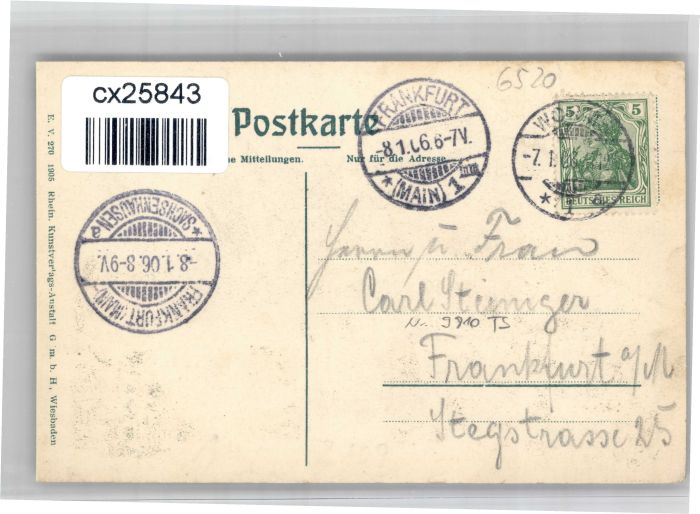 cx25843
6520
Postkarte
he Mitteilungen.
Nur für die Adresse.
FRANKFURT
-8.1.06.6-7V.
* (MAIN) 1
WORMS
-7.1.06
5 5
DEUTSCHES REICH
* SACHSENHAUSEN *
-8.1.06.8-9V.
FRANKFURT (MAIN)
Herrn u Frau
Carl Steiniger
N. 9810 TS
Frankfurt a/M
Stegstrasse 25
E. V. 270 1905 Rhein. Kunstverlags-Anstalt G m. b H, Wiesbaden